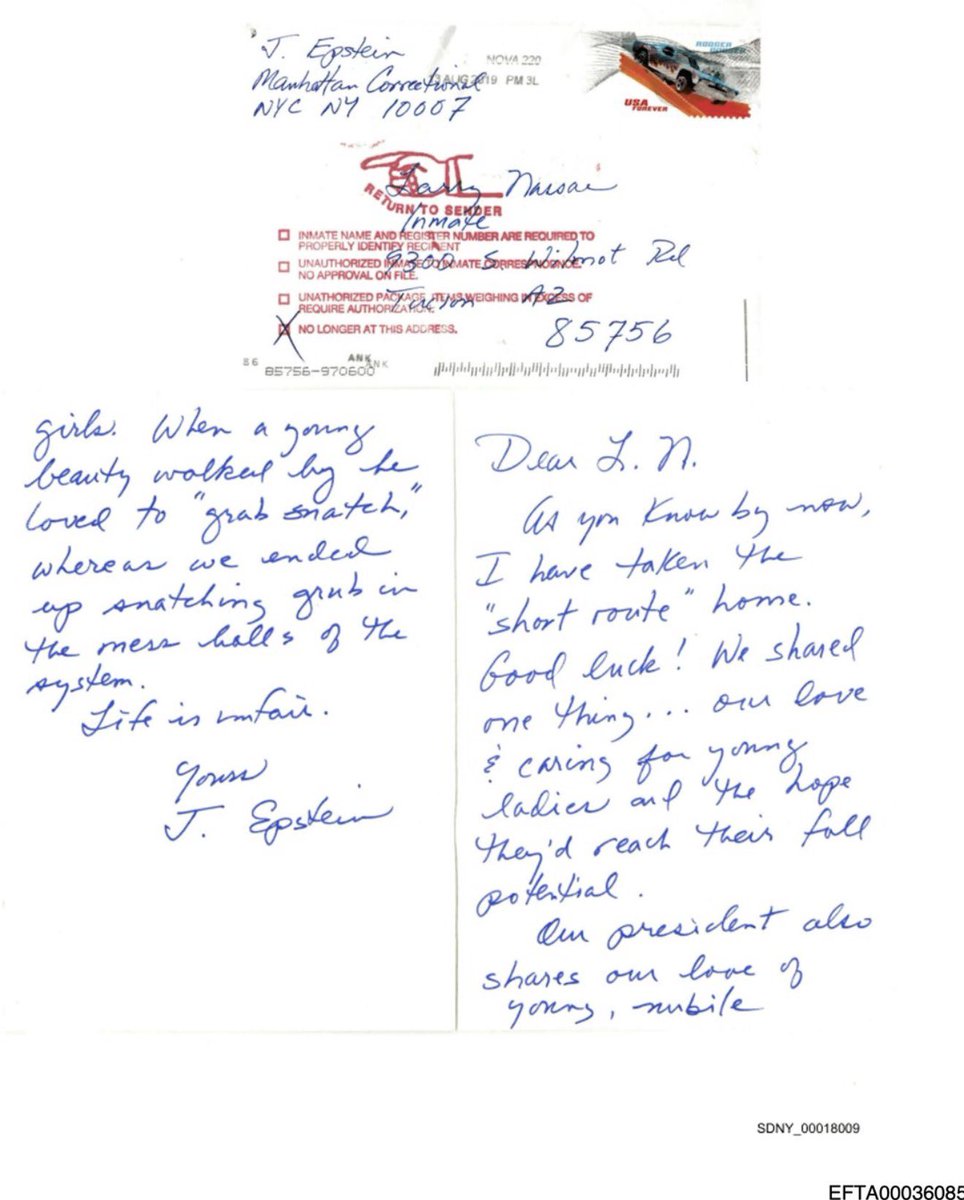 J. Epstein
Manhattan Correctional
NYC NY 10007
NOVA 220
AUG 2019 PM 3L
USA
FOREVER
RETURN TO SENDER
Larry Nassar
Inmate
9300 S. Wilmot Rd
Tucson AZ
85756
INMATE NAME AND REGISTER NUMBER ARE REQUIRED TO
PROPERLY IDENTIFY RECIPIENT
UNAUTHORIZED INMATE TO INMATE CORRESPONDENCE.
NO APPROVAL ON FILE.
UNATHORIZED PACKAGE, ITEMS WEIGHING IN EXCESS OF
REQUIRE AUTHORIZATION.
NO LONGER AT THIS ADDRESS.
86
85756-970600
ANK
ANK
Dear L. N.
As you know by now,
I have taken the
"short route" home.
Good luck! We shared
one thing... our love
& caring for young
ladies and the hope
they'd reach their full
potential.
Our president also
shares our love of
young, nubile
girls. When a young
beauty walked by he
loved to "grab snatch,"
whereas we ended
up snatching grub in
the mess halls of the
system.
Life is unfair.
Yours
J. Epstein
SDNY_00018009
EFTA00036085